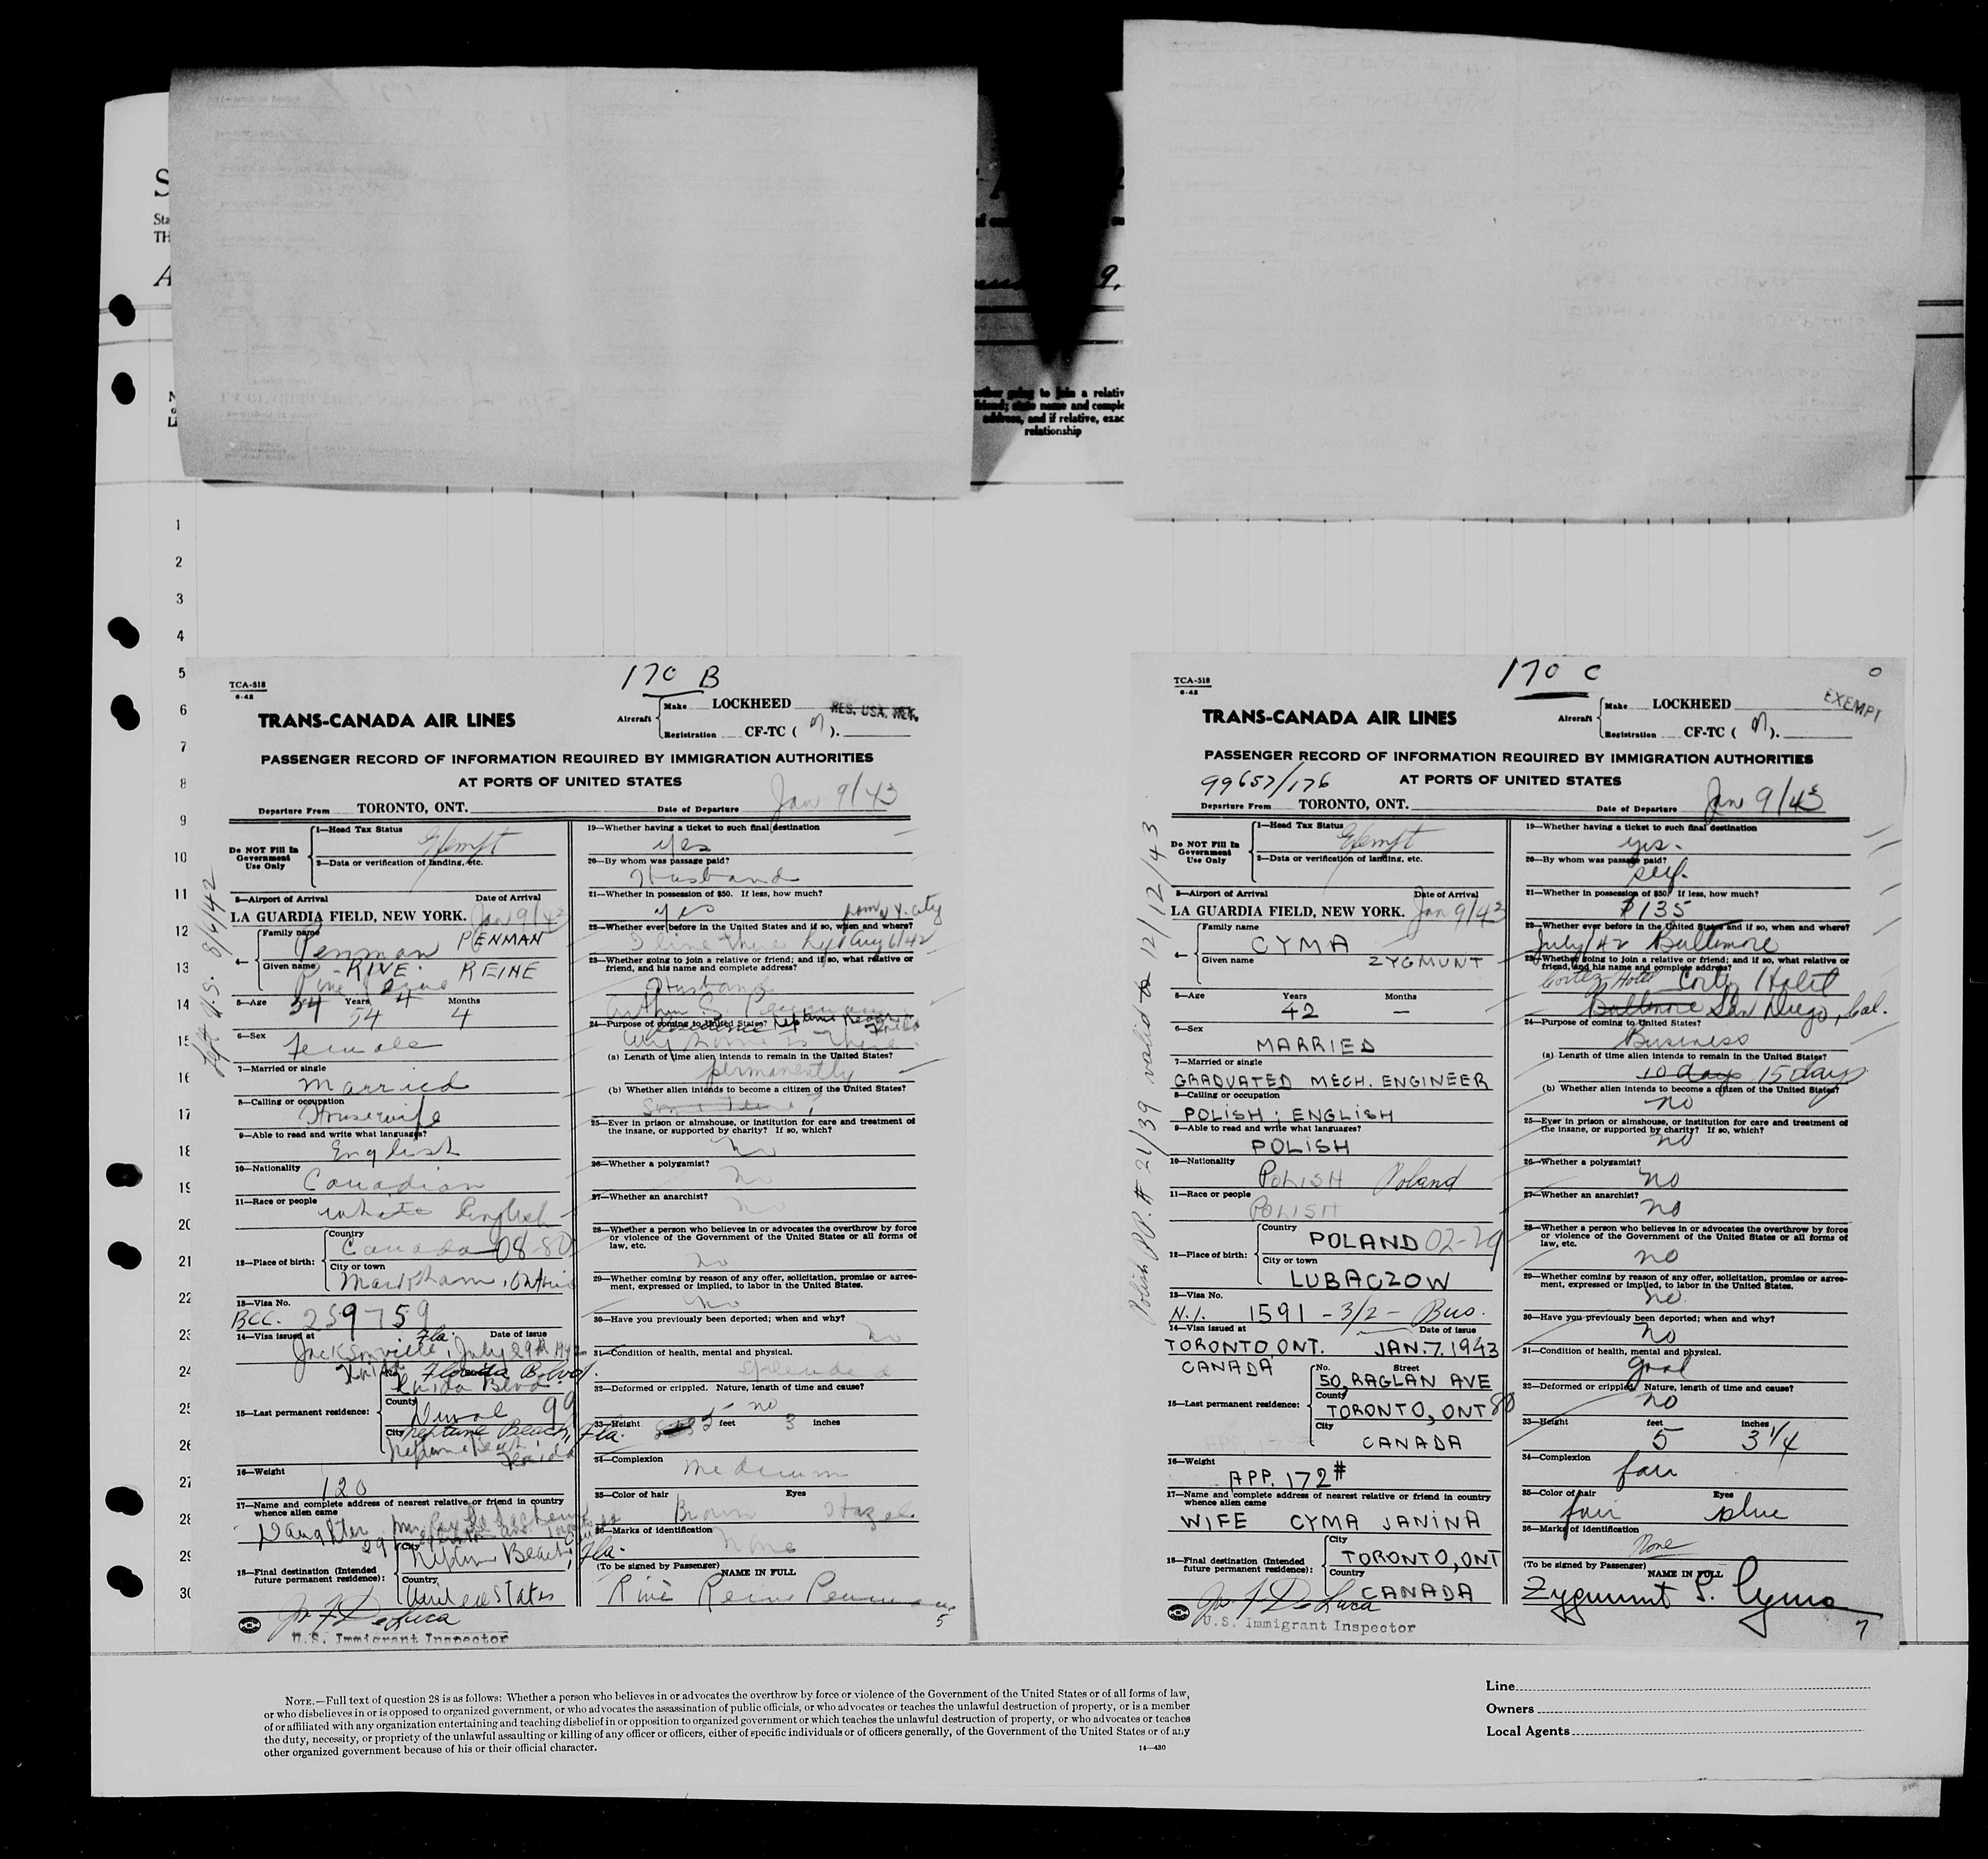 S
Sta
TH
A
9,
whether going to join a relativ
friend; state name and comple
address, and if relative, exac
relationship
1
2
3
4
5
6
7
8
9
10
11
12
13
14
15
16
17
18
19
20
21
22
23
24
25
26
27
28
29
30
170 B
TCA-518
6-42
TRANS-CANADA AIR LINES
Aircraft
Make LOCKHEED
RES. USA. RET.
Registration CF-TC ( ).
PASSENGER RECORD OF INFORMATION REQUIRED BY IMMIGRATION AUTHORITIES
AT PORTS OF UNITED STATES
Departure From TORONTO, ONT. Date of Departure Jan 9/43
Do NOT Fill In Government Use Only
1—Head Tax Status Exempt
2—Data or verification of landing, etc.
3—Airport of Arrival Date of Arrival
LA GUARDIA FIELD, NEW YORK. Jan 9/43
4— Family name Penman PENMAN
Given name RINE REINE
5—Age 54 Years 4 Months
54 4
6—Sex Female
7—Married or single
Married
8—Calling or occupation
Housewife
9—Able to read and write what languages?
English
10—Nationality
Canadian
11—Race or people white English
12—Place of birth:
Country
Canada 08-80
City or town
Markham, Ontario
13—Visa No.
BCC. 259759
14—Visa issued at Fla. Date of issue
Jacksonville, July 29th 1942
15—Last permanent residence:
No. Florida Blvd.
County
Duval 99
City Neptune Beach, Fla.
16—Weight
120
17—Name and complete address of nearest relative or friend in country whence alien came
Daughter
18—Final destination (Intended future permanent residence):
City
Neptune Beach, Fla.
Country
United States
Jos F. DeLuca
U.S. Immigrant Inspector
19—Whether having a ticket to such final destination
yes
20—By whom was passage paid?
Husband
21—Whether in possession of $50. If less, how much?
yes
from N.Y. City
22—Whether ever before in the United States and if so, when and where?
I live there Aug 6/42
23—Whether going to join a relative or friend; and if so, what relative or
friend, and his name and complete address?
Husband
24—Purpose of coming to United States?
my home is there
(a) Length of time alien intends to remain in the United States?
permanently
(b) Whether alien intends to become a citizen of the United States?
25—Ever in prison or almshouse, or institution for care and treatment of
the insane, or supported by charity? If so, which?
No
26—Whether a polygamist?
No
27—Whether an anarchist?
No
28—Whether a person who believes in or advocates the overthrow by force
or violence of the Government of the United States or all forms of
law, etc.
No
29—Whether coming by reason of any offer, solicitation, promise or agree-
ment, expressed or implied, to labor in the United States.
No
30—Have you previously been deported; when and why?
No
31—Condition of health, mental and physical.
Splendid
32—Deformed or crippled. Nature, length of time and cause?
no
33—Height 5 feet 3 inches
34—Complexion
Medium
35—Color of hair Eyes
Brown Hazel
36—Marks of identification
None
(To be signed by Passenger) NAME IN FULL
Rine Reine Penman
5
170 C
TCA-518
6-42
EXEMPT
TRANS-CANADA AIR LINES
Aircraft
Make LOCKHEED
Registration CF-TC ( ).
PASSENGER RECORD OF INFORMATION REQUIRED BY IMMIGRATION AUTHORITIES
AT PORTS OF UNITED STATES
99657/176
Departure From TORONTO, ONT. Date of Departure Jan 9/43
Polish PP. # 21/39 valid to 12/12/43
Do NOT Fill In Government Use Only
1—Head Tax Status Exempt
2—Data or verification of landing, etc.
3—Airport of Arrival Date of Arrival
LA GUARDIA FIELD, NEW YORK. Jan 9/43
4— Family name
CYMA
Given name ZYGMUNT
5—Age Years Months
42 —
6—Sex
MARRIED
7—Married or single
GRADUATED MECH. ENGINEER
8—Calling or occupation
POLISH; ENGLISH
9—Able to read and write what languages?
POLISH
10—Nationality
POLISH Poland
11—Race or people
POLISH
12—Place of birth:
Country
POLAND 02-29
City or town
LUBACZOW
13—Visa No.
N.I. 1591 - 3/2 - Bus.
14—Visa issued at Date of issue
TORONTO, ONT. JAN. 7. 1943
CANADA
15—Last permanent residence:
No. Street
50, RAGLAN AVE
County
TORONTO, ONT 80
City
CANADA
16—Weight
APP. 172#
17—Name and complete address of nearest relative or friend in country
whence alien came
WIFE CYMA JANINA
18—Final destination (Intended future permanent residence):
City
TORONTO, ONT
Country
CANADA
Jos F DeLuca
U.S. Immigrant Inspector
19—Whether having a ticket to such final destination
yes.
20—By whom was passage paid?
self.
21—Whether in possession of $50. If less, how much?
$135
22—Whether ever before in the United States and if so, when and where?
July/42 Baltimore
23—Whether going to join a relative or friend; and if so, what relative or
friend, and his name and complete address?
Cortez Hotel
Baltimore San Diego, Cal.
24—Purpose of coming to United States?
Business
(a) Length of time alien intends to remain in the United States?
10 days 15 days
(b) Whether alien intends to become a citizen of the United States?
no
25—Ever in prison or almshouse, or institution for care and treatment of
the insane, or supported by charity? If so, which?
no
26—Whether a polygamist?
no
27—Whether an anarchist?
no
28—Whether a person who believes in or advocates the overthrow by force
or violence of the Government of the United States or all forms of
law, etc.
no
29—Whether coming by reason of any offer, solicitation, promise or agree-
ment, expressed or implied, to labor in the United States.
no.
30—Have you previously been deported; when and why?
no
31—Condition of health, mental and physical.
good
32—Deformed or crippled. Nature, length of time and cause?
no
33—Height feet inches
5 3 1/4
34—Complexion
fair
35—Color of hair Eyes
fair blue
36—Marks of identification
None
(To be signed by Passenger) NAME IN FULL
Zygmunt S. Cyma
7
NOTE.—Full text of question 28 is as follows: Whether a person who believes in or advocates the overthrow by force or violence of the Government of the United States or of all forms of law,
or who disbelieves in or is opposed to organized government, or who advocates the assassination of public officials, or who advocates or teaches the unlawful destruction of property, or is a member
of or affiliated with any organization entertaining and teaching disbelief in or opposition to organized government or which teaches the unlawful destruction of property, or who advocates or teaches
the duty, necessity, or propriety of the unlawful assaulting or killing of any officer or officers, either of specific individuals or of officers generally, of the Government of the United States or of any
other organized government because of his or their official character.
14—430
Line
Owners
Local Agents